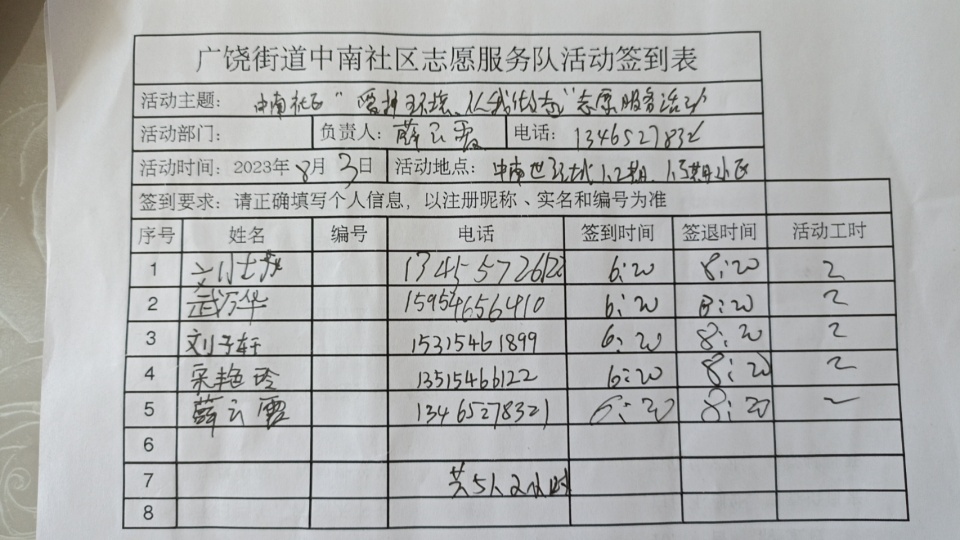 广饶街道中南社区志愿服务队活动签到表
活动主题： 中南社区"爱护环境、从我做起"志愿服务活动
活动部门： 负责人：薛云霞 电话：1346527832
活动时间：2023年8月3日 活动地点：中南世纪城1.2期、1.5期小区
签到要求：请正确填写个人信息，以注册昵称、实名和编号为准
序号 姓名 编号 电话 签到时间 签退时间 活动工时
1 刘 13455726122 6:20 8:20 2
2 武万华 15954656410 6:20 8:20 2
3 刘子轩 15315461899 6:20 8:20 2
4 宋艳玲 13515466122 6:20 8:20 2
5 薛云霞 13465278321 6:20 8:20 2
6
7 共5人2小时
8